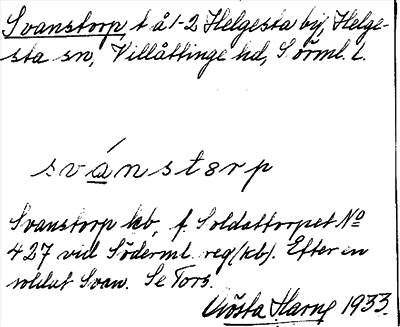 Svanstorp, t å 1-2 Helgesta by, Helge-
sta sn, Villåttinge hd, Sörml. l.
svánstorp
Svanstorp kb, f. Soldattorpet No
427 vid Söderml. reg (kb). Efter en
soldat Svan. Se Tors.
Gösta Harne 1933.